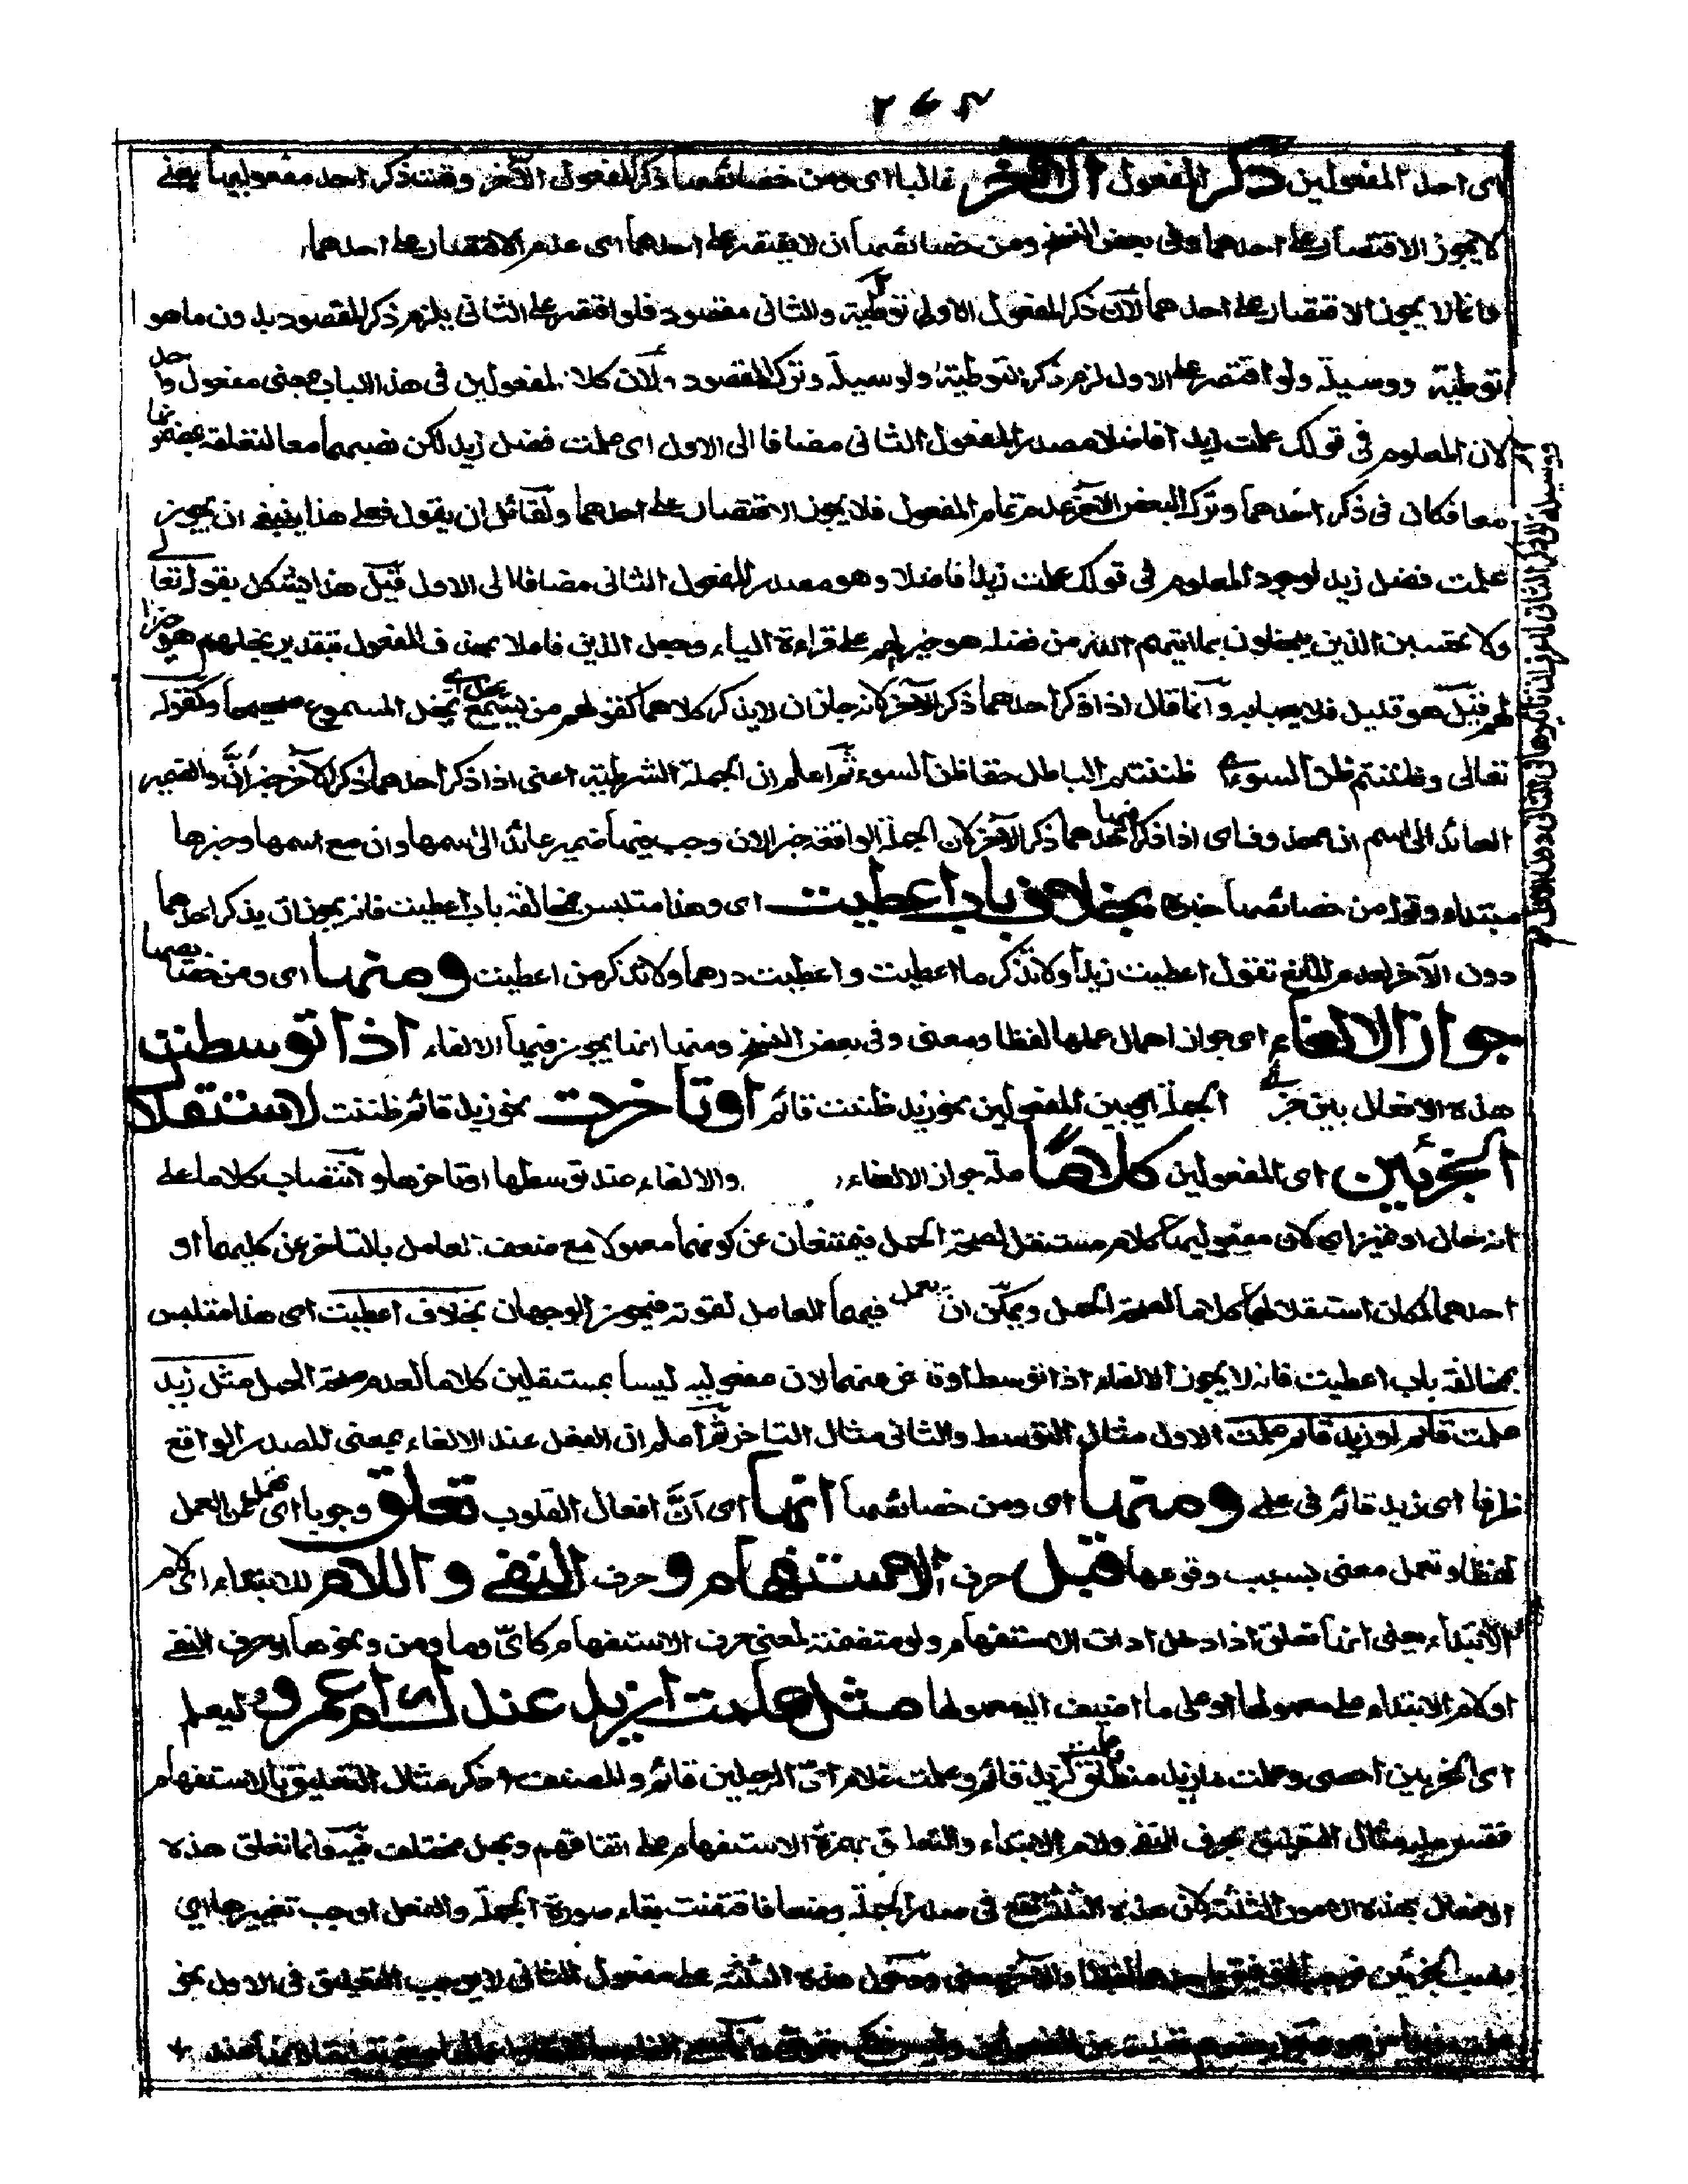 اى احد المفعولين ذكر المفعول الآخر غالبا اى ومن خصائصها ذكر المفعول الآخر وقت ذكر احد مفعوليها يعنى
لا يجوز الاقتصار على احدهما وفى بعض النسخ ومن خصائصها ان لا يقتصر على احدهما اى عدم الاقتصار على احدهما
وانما لا يجوز الاقتصار على احدهما لان ذكر المفعول الاول توطية والثانى مقصود فلو اقتصر على الثانى يلزم ذكر المقصود بدون ما هو
توطية ووسيلة ولو اقتصر على الاول لزم ذكر التوطية والوسيلة وترك المقصود ولان كلا المفعولين فى هذا الباب بمعنى مفعول واحد
لان المعلوم فى قولك علمت زيدا فاضلا مصدر المفعول الثانى مضافا الى الاول اى علمت فضل زيد لكن نصبهما معا لتعلقه بمضمونهما
معا فكان فى ذكر احدهما وترك البعض الآخر عدم تمام المفعول فلا يجوز الاقتصار على احدهما ولقائل ان يقول فعلى هذا ينبغى ان يجوز
علمت فضل زيد لوجود المعلوم فى قولك علمت زيدا فاضلا وهو مصدر المفعول الثانى مضافا الى الاول قيل هذا يشكل بقوله تعالى
ولا يحسبن الذين يبخلون بما اتيهم الله من فضله هو خير لهم على قراءة الياء وجعل الذين فاعلا بحذف المفعول بتقدير بخلهم هو خيرا
لهم قيل هو قليل فلا يعبأ به وانما قال اذا ذكر احدهما ذكر الآخر لانه جاز ان لا يذكر كلاهما كقولهم من يسمع يخل اى يخل المسموع صحيحا وكقوله
تعالى وظننتم ظن السوء اى ظننتم الباطل حقا ظن السوء ثم اعلم ان الجملة الشرطية اعنى اذا ذكر احدهما ذكر الآخر خبر ان والضمير
العائد الى اسم ان محذوف اى اذا ذكر احدهما فيها ذكر الآخر لان الجملة الواقعة خبر لان وجب فيها ضمير عائد الى اسمها وان مع اسمها وخبرها
مبتداء وقوله من خصائصها خبره بخلاف باب اعطيت اى وهذا متلبس بمخالفة باب اعطيت فانه يجوز ان يذكر احدهما
دون الآخر لعدم المانع تقول اعطيت زيدا ولا تذكر ما اعطيت واعطيت درهما ولا تذكر من اعطيت ومنها اى ومن خصائصها
جواز الالغاء اى جواز اهمال عملها لفظا ومعنى وفى بعض النسخ ومنها انها يجوز فيها الالغاء اذا توسطت
هذه الافعال بين جزئى الجملة اى بين المفعولين نحو زيد ظننت قائم او تاخرت نحو زيد قائم ظننت لاستقلال
الجزئين اى المفعولين كلاما علة جواز الالغاء والالغاء عند توسطها او تاخرها وانتصاب كلاما على
انه حال او تميز اى لان مفعوليها كلام مستقل لصحة الحمل فيمتنعان عن كونهما معمولا مع ضعف العامل بالتاخر عن كليهما او
احدهما لمكان استقلالهما كلاما لصحة الحمل ويمكن ان يعمل فيهما العامل لقوته فيجوز الوجهان بخلاف اعطيت اى هذا متلبس
بمخالفة باب اعطيت فانه لا يجوز الالغاء اذا توسط او تاخر عنهما لان مفعوليه ليسا بمستقلين كلاما لعدم صحة الحمل مثل زيد
علمت قائم او زيد قائم علمت الاول مثال التوسط والثانى مثال التاخر ثم اعلم ان الفعل عند الالغاء بمعنى المصدر الواقع
ظرفا اى زيد قائم فى علمى ومنها اى ومن خصائصها انها اى ان افعال القلوب تعلق وجوبا اى تهمل عن العمل
لفظا وتعمل معنى بسبب وقوعها قبل حرف الاستفهام و حرف النفى و اللام للابتداء اى لام
الابتداء يعنى انها تعلق اذا دخل ادات الاستفهام ولو متضمنة لمعنى حرف الاستفهام كاىّ وما ومن ونحوها او حرف النفى
او لام الابتداء على معمولها او على ما اضيف اليه معمولها مثل علمت ازيد عندك ام عمرو ليعلم
اى الحزبين احصى وعلمت ما زيد منطلق وعلمت لزيد قائم وعلمت غلام اىّ الرجلين قائم والمصنف ذكر مثال التعليق بالاستفهام
فقس عليه مثال التعليق بحرف النفى ولام الابتداء والتعليق بهمزة الاستفهام على اتفاقهم وبهل مختلف فيه وانما تعلق هذه
الافعال بهذه الامور الثلثة لان هذه الثلثة تقع فى صدر الجملة وضعا فاقتضت بقاء صورة الجملة والفعل اوجب تغييرها اى
بنصب الجزئين فوجب التوفيق باعتبار احدهما لفظا والآخر معنى ودخول هذه الثلثة على مفعول الثانى لا يوجب التعليق فى الاول نحو